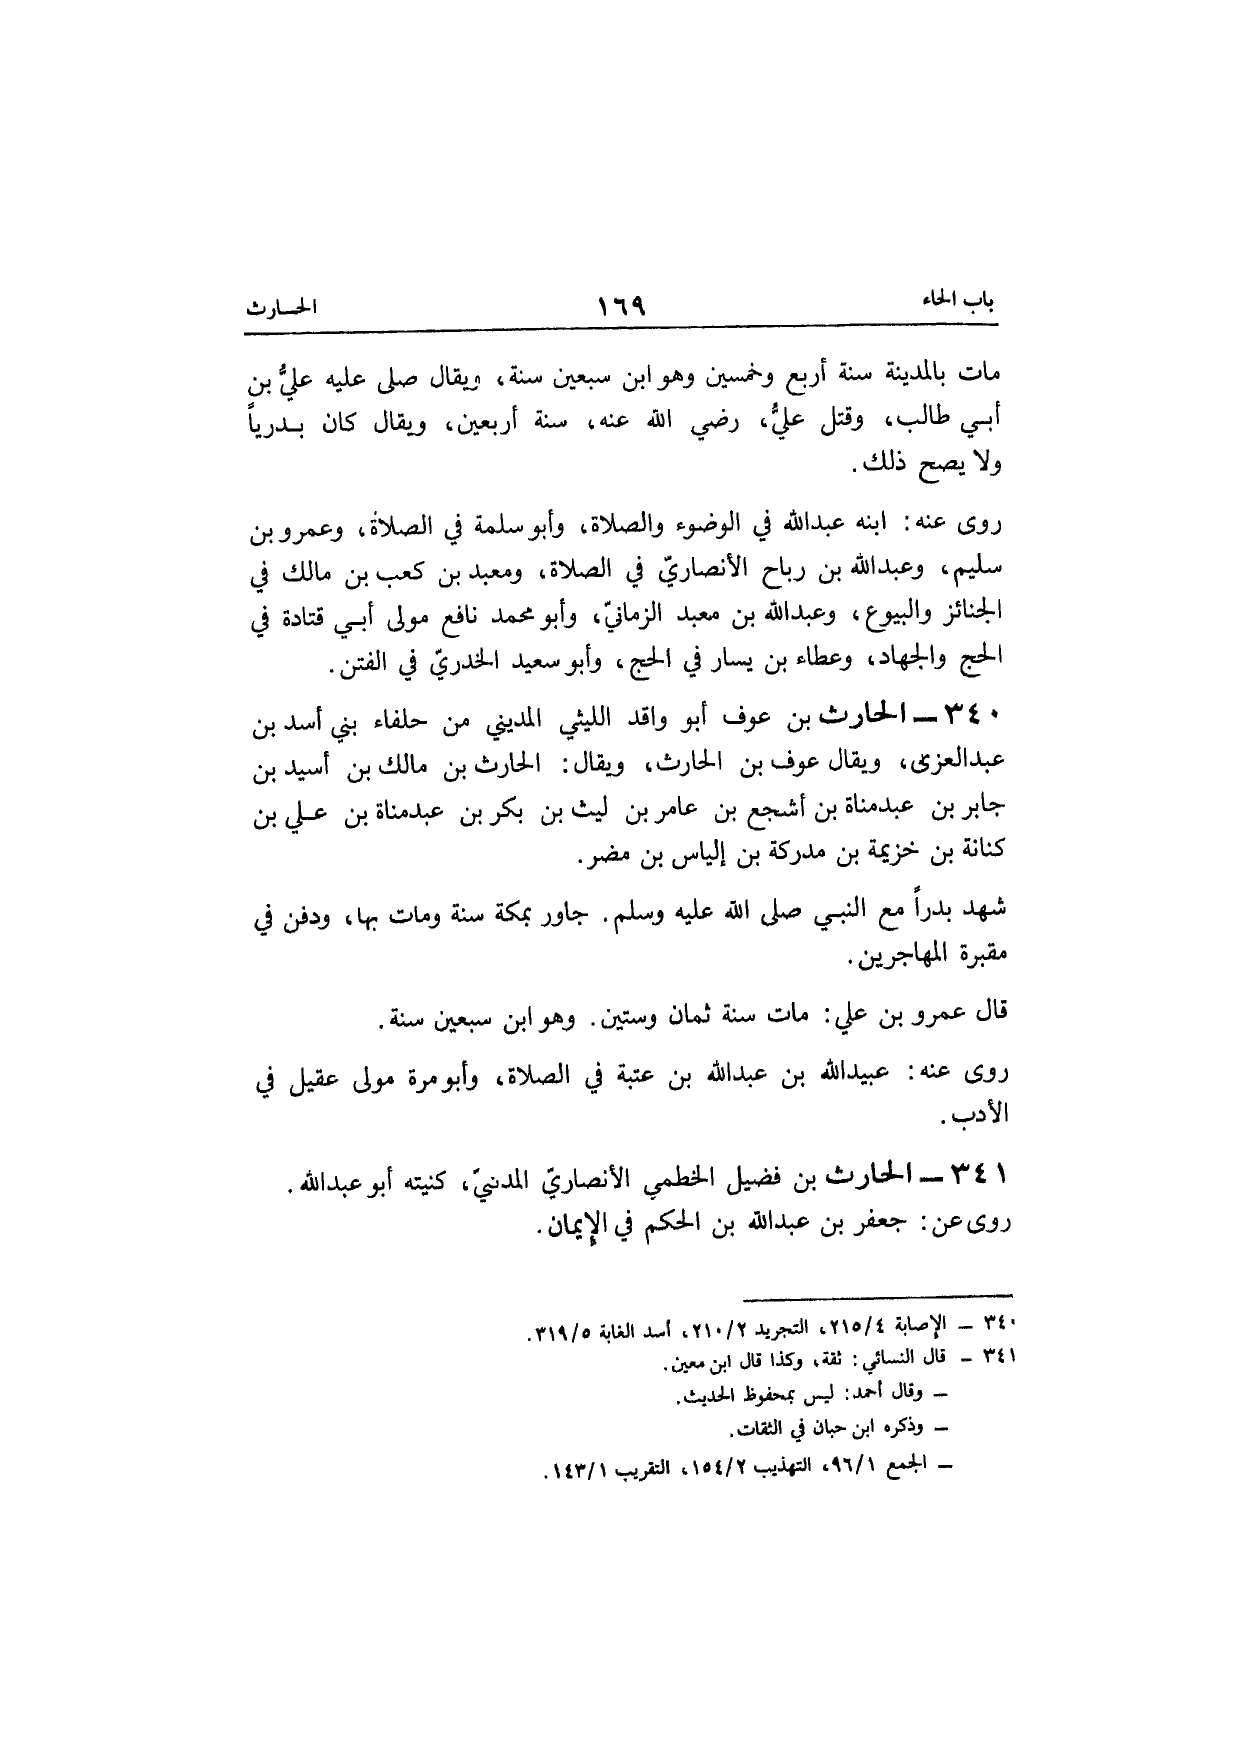 باب الحاء ١٦٩ الحارث
مات بالمدينة سنة أربع وخمسين وهو ابن سبعين سنة، ويقال صلى عليه عليُّ بن
أبي طالب، وقتل عليُّ، رضي الله عنه، سنة أربعين، ويقال كان بدرياً
ولا يصح ذلك.
روى عنه: ابنه عبدالله في الوضوء والصلاة، وأبو سلمة في الصلاة، وعمرو بن
سليم، وعبدالله بن رباح الأنصاريّ في الصلاة، ومعبد بن كعب بن مالك في
الجنائز والبيوع، وعبدالله بن معبد الزمانيّ، وأبو محمد نافع مولى أبي قتادة في
الحج والجهاد، وعطاء بن يسار في الحج، وأبو سعيد الخدريّ في الفتن.
٣٤٠ ــ الحارث بن عوف أبو واقد الليثي المديني من حلفاء بني أسد بن
عبدالعزى، ويقال عوف بن الحارث، ويقال: الحارث بن مالك بن أسيد بن
جابر بن عبدمناة بن أشجع بن عامر بن ليث بن بكر بن عبدمناة بن علي بن
كنانة بن خزيمة بن مدركة بن إلياس بن مضر.
شهد بدراً مع النبي صلى الله عليه وسلم. جاور بمكة سنة ومات بها، ودفن في
مقبرة المهاجرين.
قال عمرو بن علي: مات سنة ثمان وستين. وهو ابن سبعين سنة.
روى عنه: عبيدالله بن عبدالله بن عتبة في الصلاة، وأبو مرة مولى عقيل في
الأدب.
٣٤١ ــ الحارث بن فضيل الخطمي الأنصاريّ المدنيّ، كنيته أبو عبدالله.
روى عن: جعفر بن عبدالله بن الحكم في الإيمان.
٣٤٠ ــ الإصابة ٢١٥/٤، التجريد ٢١٠/٢، أسد الغابة ٣١٩/٥.
٣٤١ ــ قال النسائي: ثقة، وكذا قال ابن معين.
ــ وقال أحمد: ليس بمحفوظ الحديث.
ــ وذكره ابن حبان في الثقات.
ــ الجمع ٩٦/١، التهذيب ١٥٤/٢، التقريب ١٤٣/١.